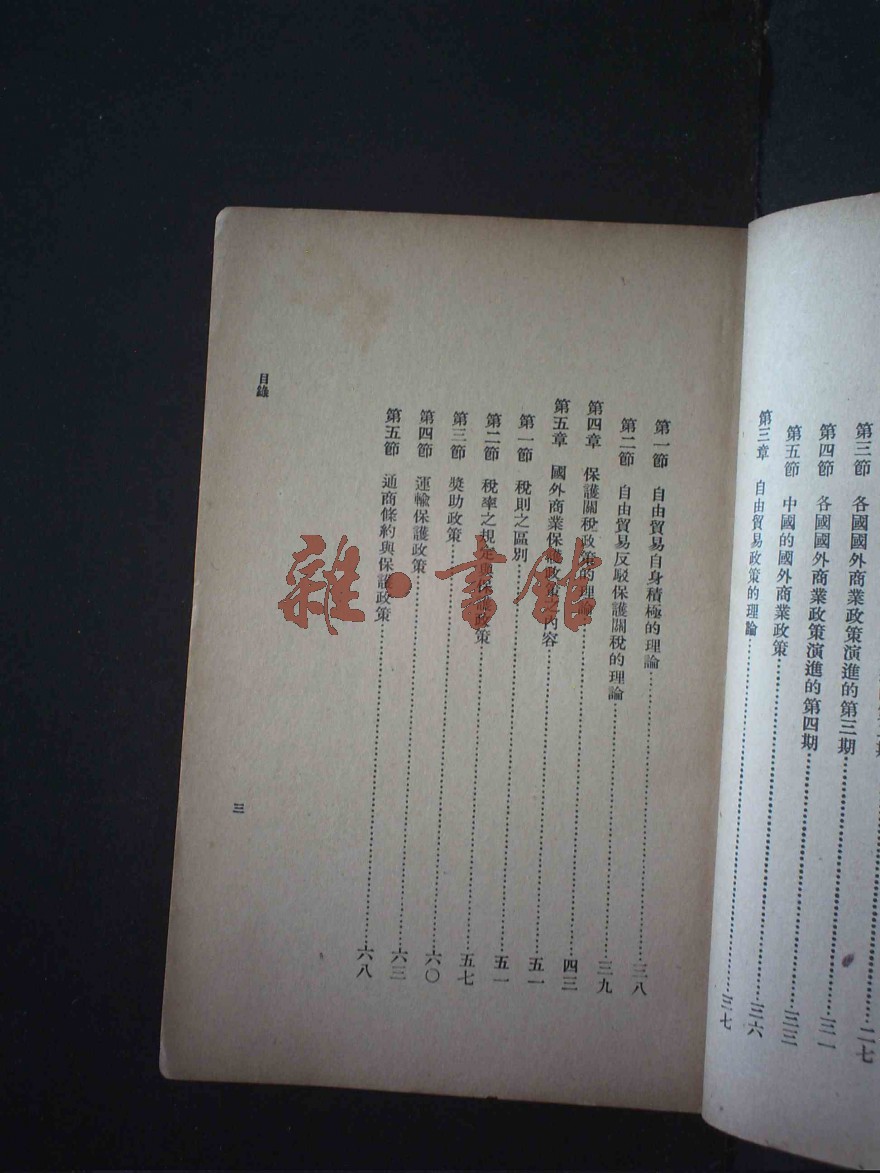 期……二七
第三節 各國國外商業政策演進的第三期……三一
第四節 各國國外商業政策演進的第四期……三三
第五節 中國的國外商業政策……三六
第三章 自由貿易政策的理論……三七
第一節 自由貿易自身積極的理論……三八
第二節 自由貿易反駁保護關稅的理論……三九
第四章 保護關稅政策的理論……四三
第五章 國外商業保護政策之內容……五一
第一節 稅則之區別……五一
第二節 稅率之規定與保護政策……五七
第三節 獎助政策……六〇
第四節 運輸保護政策……六三
第五節 通商條約與保護政策……六八
目錄
三
雜·書館